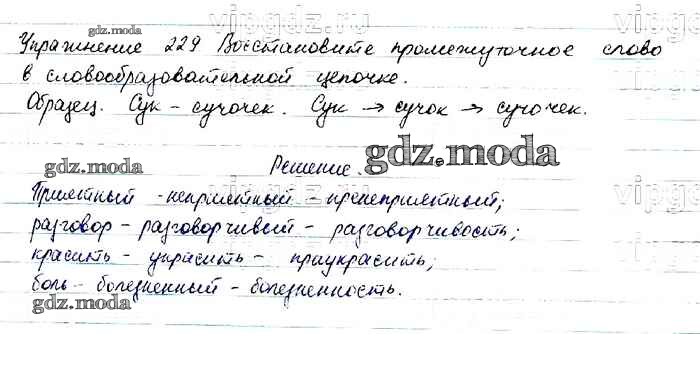 vipgdz.ru vipgdz.ru
gdz.moda
Упражнение 229 Восстановите промежуточное слово
в словообразовательной цепочке.
Образец. Сук - сучочек. Сук → сучок → сучочек.
gdz.moda
gdz.moda
Решение. gdz.moda
gdz.moda
Приятный - неприятный - пренеприятный;
разговор - разговорчивый - разговорчивость;
gdz.moda
красить - украсить - приукрасить;
боль - болезненный - болезненность.
gdz.moda